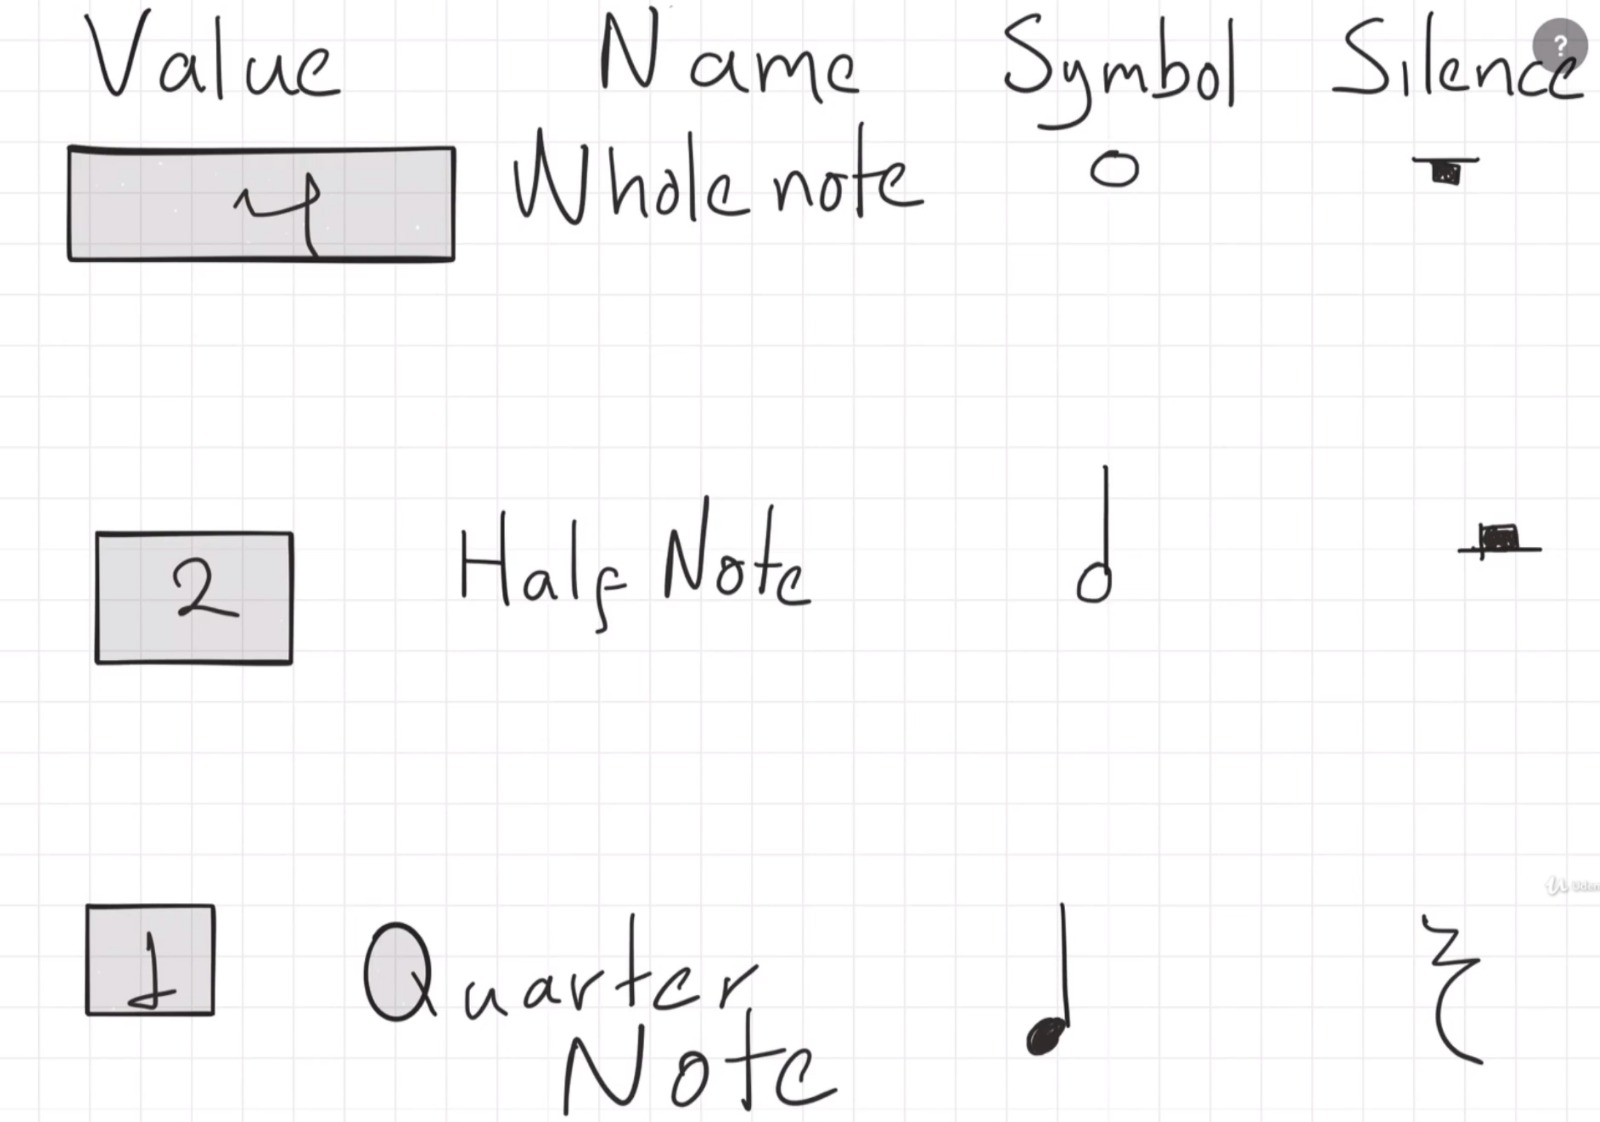 Value Name Symbol Silence
?
4 Whole note
2 Half Note
1 Quarter
Note